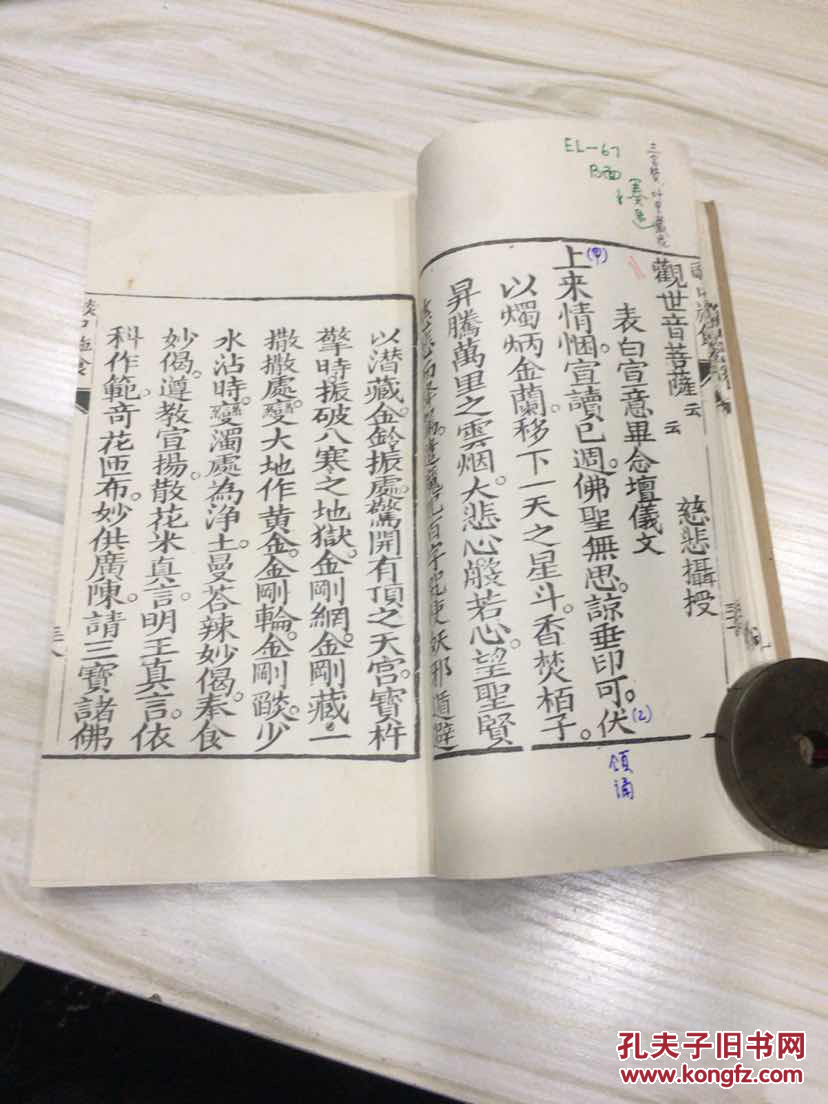 EL-67
B面
觀世音菩薩云云
慈悲攝授
表白宣意畢念壇儀文
上来情悃宣讀已週。佛聖無思。諒垂印可。伏
(甲)
(2)
領誦
以燭炳金蘭。移下一天之星斗。香焚栢子。
昇騰萬里之雲烟。大悲心。般若心。望聖賢
百字咒使妖邪遁避
以潜藏。金鈴振處。驚開有頂之天宮。寶杵
擎時振破八寒之地獄。金剛網。金剛藏。一
撒撒處。變大地作黄金。金剛輪。金剛酸。少
水沾時。變濁處為淨土。曼荅辣妙偈。奉食
妙偈。遵教宣揚。散花米真言。明王真言。依
科作範。竒花匝布。妙供廣陳。請三寶諸佛
三八
孔夫子旧书网
www.kongfz.com